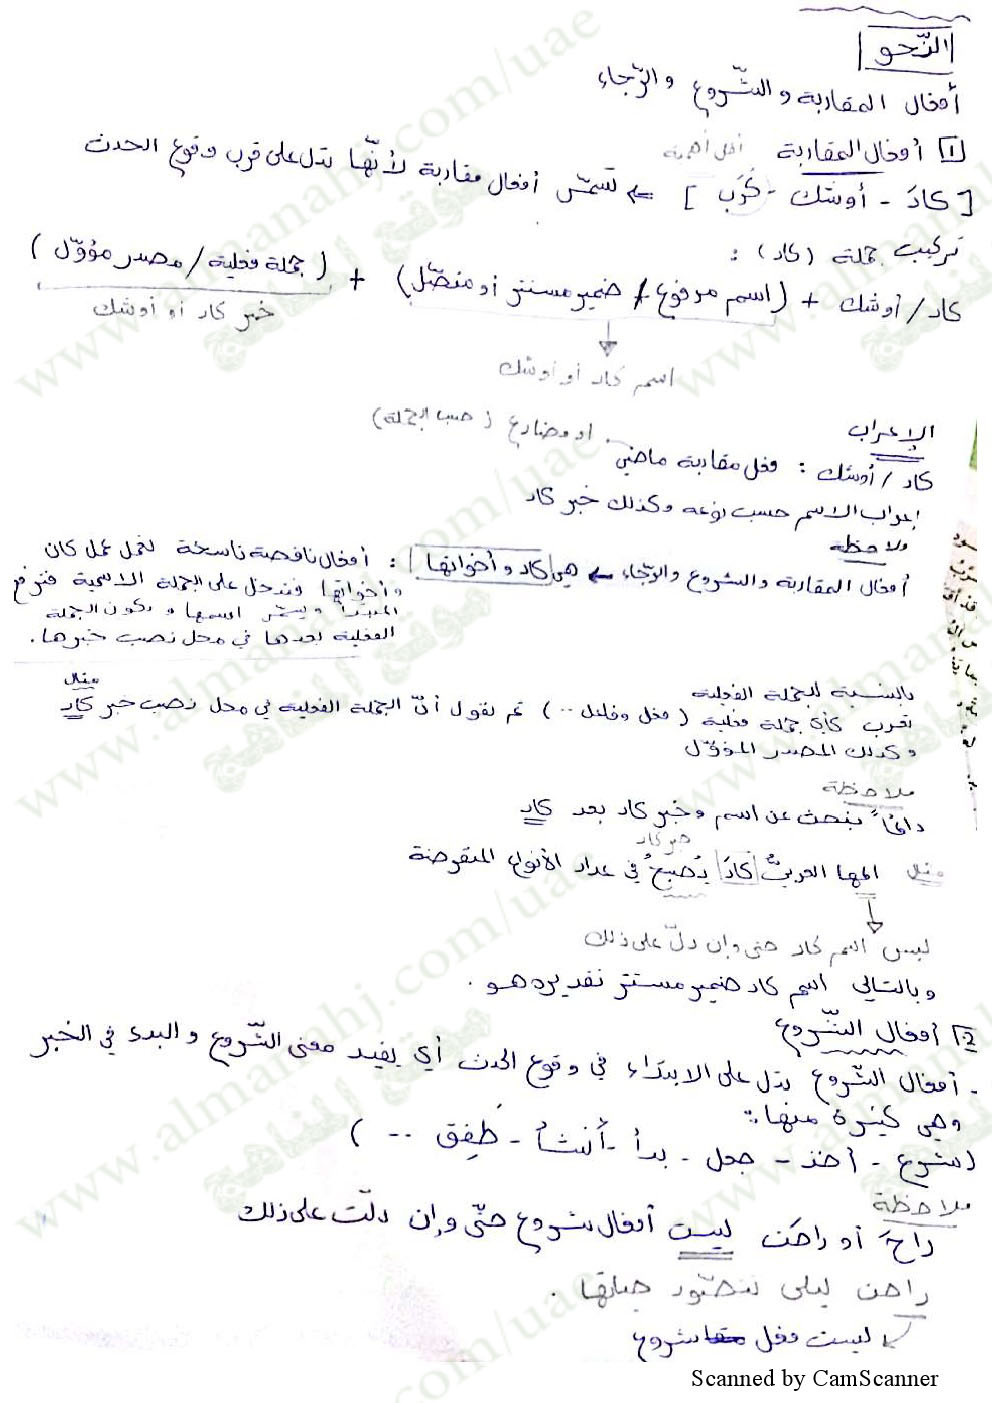 النّحو
أفعال المقاربة والشّروع والرّجاء
1 أفعال المقاربة أقل أهمية
[كادَ - أوشك - كَرَب] ⇐ تسمّى أفعال مقاربة لأنّها تدل على قرب وقوع الحدث
تركيب جملة (كاد):
كاد/أوشك + (اسم مرفوع / ضمير مستتر أو متصّل) + (جملة فعلية/مصدر مؤوّل)
خبر كاد أو أوشك
اسم كاد أو أوشك
الإعراب
أو مضارع (حسب الجملة)
كاد/أوشك : فعل مقاربة ماضي
إعراب الاسم حسب نوعه وكذلك خبر كاد
ملاحظة
أفعال المقاربة والشروع والرّجاء ← هي كاد وأخواتها : أفعال ناقصة ناسخة تعمل عمل كان
وأخواتها فتدخل على الجملة الاسمية فترفع
المبتدأ ويسمّى اسمها وتكون الجملة
الفعلية بعدها في محل نصب خبرها.
بالنسبة للجملة الفعلية
تعرب كأي جملة فعلية (فعل وفاعل ..) ثم نقول أنّ الجملة الفعلية في محل نصب خبر كاد
مثال
وكذلك المصدر المؤوّل
ملاحظة
دائماً نبحث عن اسم وخبر كاد بعد كاد
خبر كاد
مثال المها العربيُّ كادَ يُصبحُ في عداد الأنواع المنقرضة
ليس اسم كاد حتى وإن دلّ على ذلك
وبالتالي اسم كاد ضمير مستتر تقديره هو.
2 أفعال الشّروع
- أفعال الشّروع تدل على الابتداء في وقوع الحدث أي يفيد معنى الشّروع والبدء في الخبر
وهي كثيرة منها:
(شرع - أخذ - جعل - بدأ - أنشأ - طَفِق ..)
ملاحظة
راحَ أو راحت ليست أفعال شروع حتّى وإن دلّت على ذلك
راحت ليلى تتصّور حياتها.
ليست فعل شروع
Scanned by CamScanner
www.almanahj.com/uae
موقع المناهج